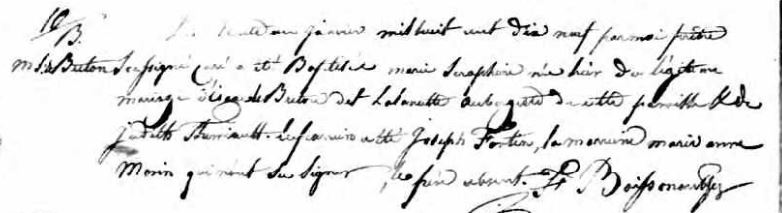 10
B.
Le trente un janvier mil huit cent dix neuf par moi prêtre
M. S. LeBreton Soussigné curé a été Baptisée marie Seraphine née hier du légitime
mariage LeBreton dit Lalancette aubergiste de cette paroisse & de
Judith Therriault. Le parrain a été Joseph Fortin, la marraine marie anne
Morin qui n'ont su signer, le père absent. Boissonnault Ptre